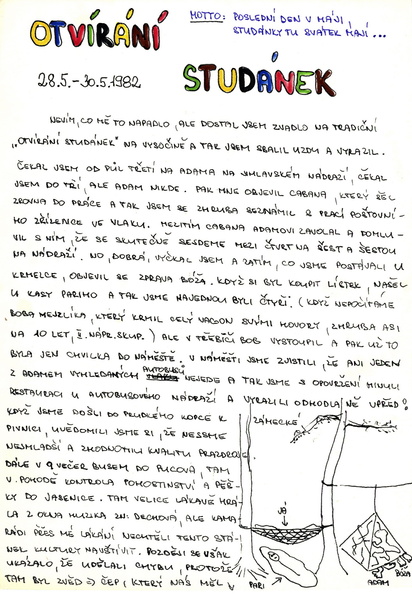 OTVÍRÁNÍ
MOTTO: POSLEDNÍ DEN V MÁJI,
STUDÁNKY TU SVÁTEK MAJÍ...
28.5.-30.5.1982
STUDÁNEK
NEVÍM, CO MĚ TO NAPADLO, ALE DOSTAL JSEM ZVADLO NA TRADIČNÍ
„OTVÍRÁNÍ STUDÁNEK" NA VYSOČINĚ A TAK JSEM SBALIL UZDU A VYRAZIL.
ČEKAL JSEM OD PŮL TŘETÍ NA ADAMA NA JIHLAVSKÉM NÁDRAŽÍ, ČEKAL
JSEM DO TŘÍ, ALE ADAM NIKDE. PAK MNE OBJEVIL CABANA, KTERÝ ŠEL
ZROVNA DO PRÁCE A TAK JSEM SE ZHRUBA SEZNÁMIL S PRACÍ POŠTOVNÍ-
HO ZŘÍZENCE VE VLAKU. MEZITÍM CABANA ADAMOVI ZAVOLAL A DOMLU-
VIL S NÍM, ŽE SE SKUTEČNĚ SEJDEME MEZI ČTVRT NA ŠEST A ŠESTOU
NA NÁDRAŽÍ. NO, DOBRÁ, VYČKAL JSEM A ZATÍM, CO JSME POSTÁVALI U
KRMELCE, OBJEVIL SE ZPRAVA BÓŽA. KDYŽ SI BYL KOUPIT LÍSTEK, NAŠEL
U KASY PARIHO A TAK JSME NAJEDNOU BYLI ČTYŘI. (KDYŽ NEPOČÍTÁME
BOBA MENZLÍKA, KTERÝ KRMIL CELÝ VAGON SVÝMI HOVORY, ZHRUBA ASI
NA 10 LET, II. NÁPR. SKUP.) ALE V TŘEBÍČI BOB VYSTOUPIL A PAK UŽ TO
BYLA JEN CHVILKA DO NÁMĚŠTĚ. V NÁMĚŠTI JSME ZJISTILI, ŽE ANI JEDEN
Z ADAMEM VYHLEDANÝCH AUTOBUSŮ NEJEDE A TAK JSME S OPOVRŽENÍ MINULI
RESTAURACI U AUTOBUSOVÉHO NÁDRAŽÍ A VYRAZILI ODHODLANĚ VPŘED!
KDYŽ JSME DOŠLI DO PRUDKÉHO KOPCE K
PIVNICI, UVĚDOMILI JSME SI, ŽE NEJSME
NEJMLADŠÍ A ZHODNOTILI KVALITU PRAZDROJE
DÁLE V 9 VEČER BUSEM DO PUCOVA, TAM
V POHODĚ KONTROLA POHOSTINSTVÍ A PĚŠ-
KY DO JASENICE. TAM VELICE LÁKAVĚ HRÁ-
LA Z OKNA HUZIKA ZN: DECHOVÁ, ALE KAMA-
RÁDI PŘES MÉ LÁKÁNÍ NECHTĚLI TENTO STÁ-
NEK KULTURY NAVŠTÍVIT. POZDĚJI SE VŠAK
UKÁZALO, ŽE UDĚLALI CHYBU, PROTOŽE
TAM BYL ZVĚD => ČEP, KTERÝ NÁS MĚL
ZÁMECKÉ
JÁ
PARI
ADAM
BÓŽA